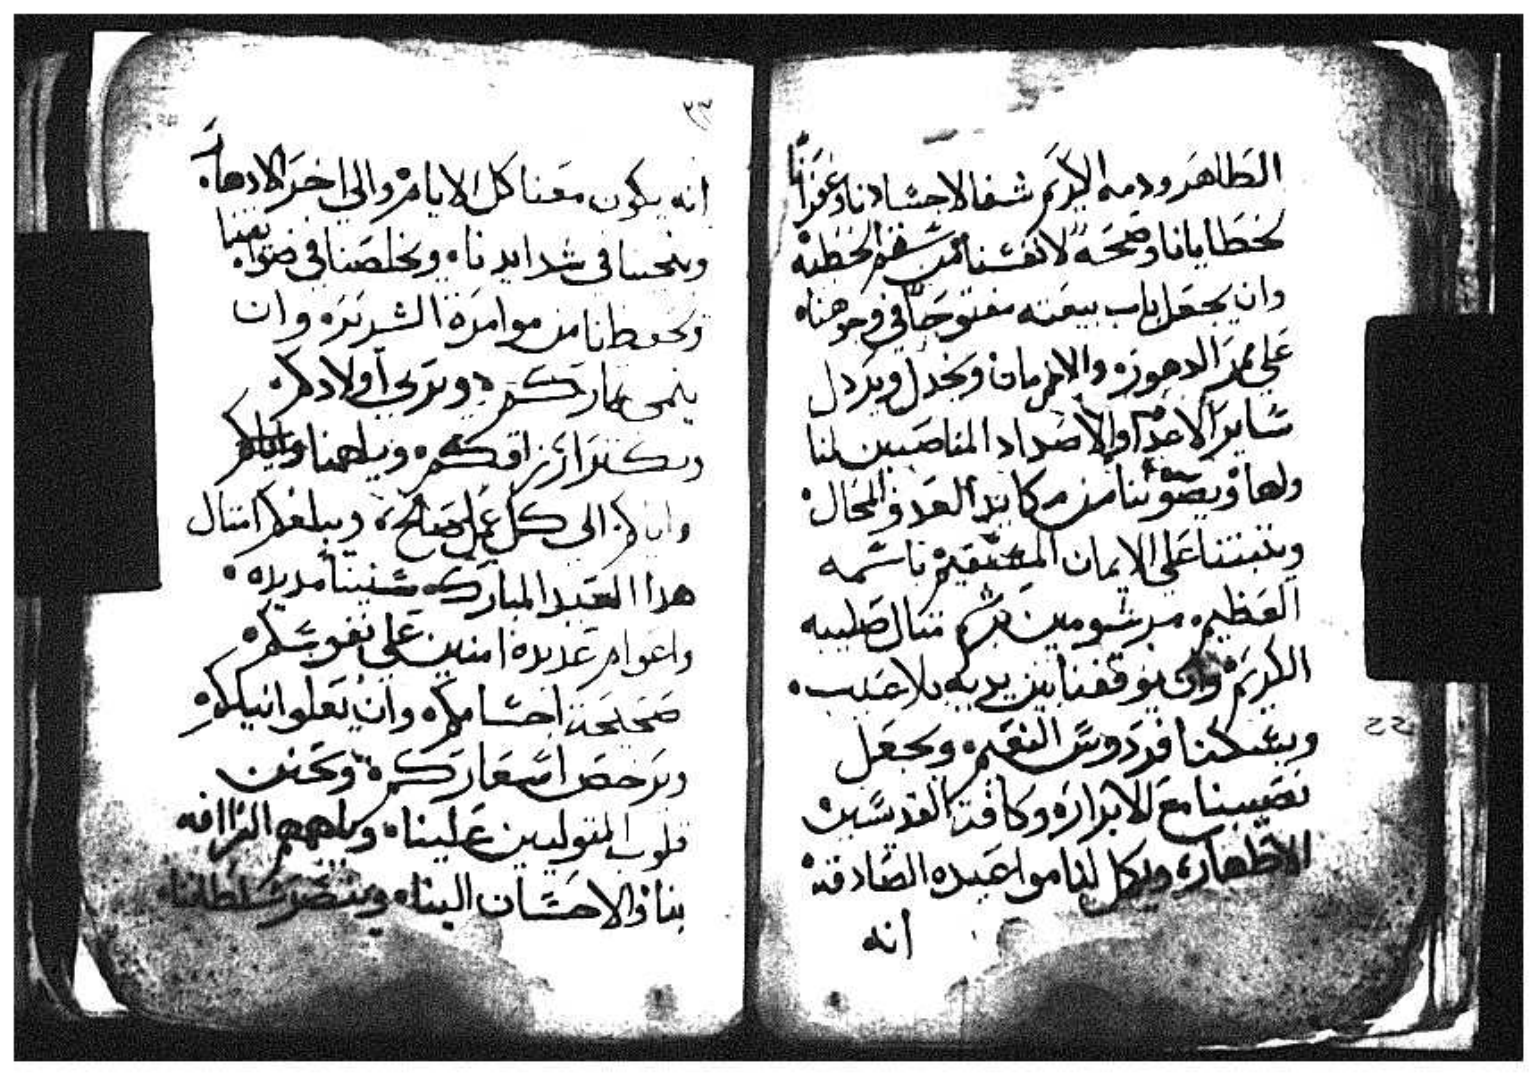 الطاهر ودمه الكريم شفا لاجسادنا وغفرانًا
لخطايانا وصحة لانفسنا من سقم الخطية
وان يجعل باب بيعته مفتوحًا في وجوهنا
على ممر الدهور والازمان ويخدل ويردل
ساير الاعدا والاضداد المناصبين لنا
ولها ويصوننا من مكايد العدو المحال
ويثبتنا على الايمان المستقيم باسمه
العظيم مرشومين برشم مثال صليبه
الكريم وان يوقفنا بين يديه بلا عيب
ويسكنا فردوس النعيم ويجعل
نصيبنا مع الابرار وكافة القديسين
الاطهار ويكمل لنا مواعيده الصادقة
انه
٣٣
انه يكون معنا كل الايام والى اخر الادهار
وينجينا في شدايدنا ويخلصنا في ضوايقنا
ويحفظنا من موامرة الشريره وان
ينمي غمارتكم ويربي اولادكم
ويكتر ارزاقكم ويلهمنا
واياكم الى كل عمل صالح ويبلغكم امتال
هدا العيد المبارك سنينًا مديده
واعوام عديدة امنين على نفوسكم
صحيحة اجسامكم وان يعلوا نيلكم
ويرخص اسعاركم ويحنن
قلوب المتوليين علينا ويلهمهم الراافه
بنا والاحسان الينا وينصر سلطاننا